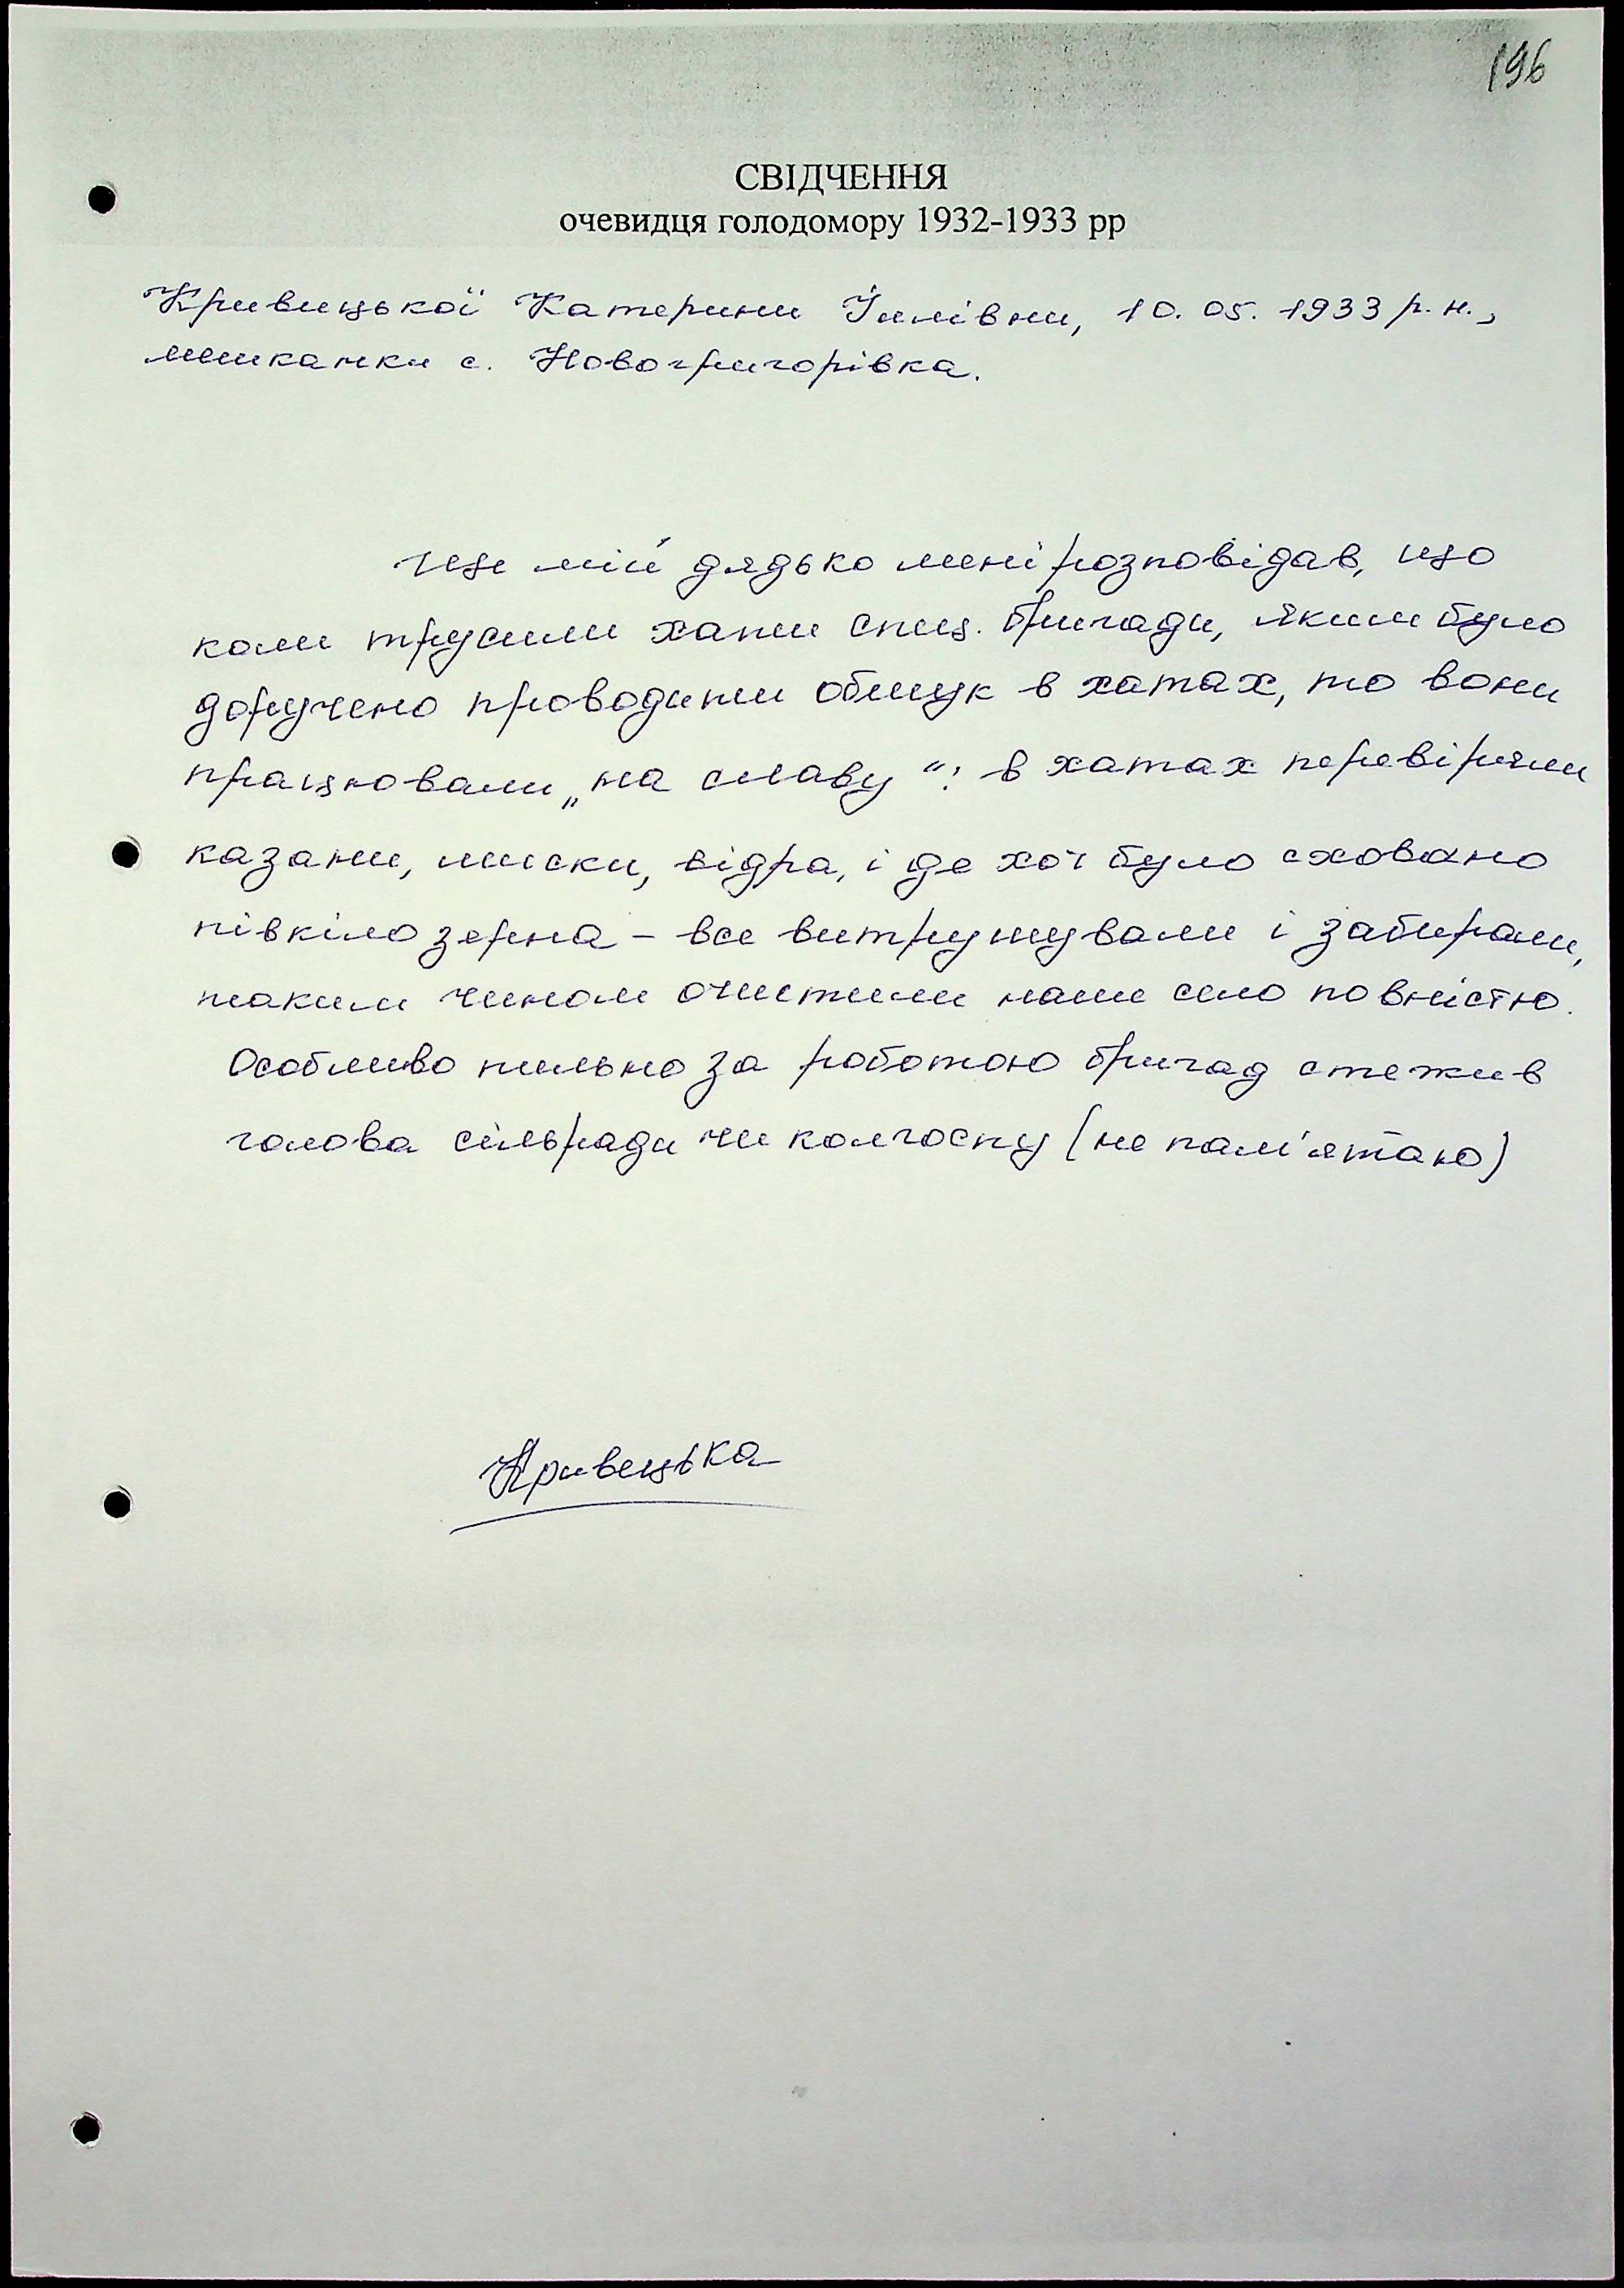 196
СВІДЧЕННЯ
очевидця голодомору 1932-1933 рр
Кривицької Катерини Їлівни, 10.05.1933 р.н.,
мешканки с. Новогригорівка.
Ще мій дядько мені розповідав, що
коли трусили хати спец. бригади, яким було
доручено проводити обшук в хатах, то вони
працювали „на славу“: в хатах перевіряли
казани, миски, відра, і де хоч було сховано
півкіло зерна – все витрушували і забирали,
таким чином очистили наше село повністю.
Особливо пильно за роботою бригад стежив
голова сільради чи колгоспу (не пам'ятаю)
Кривецька